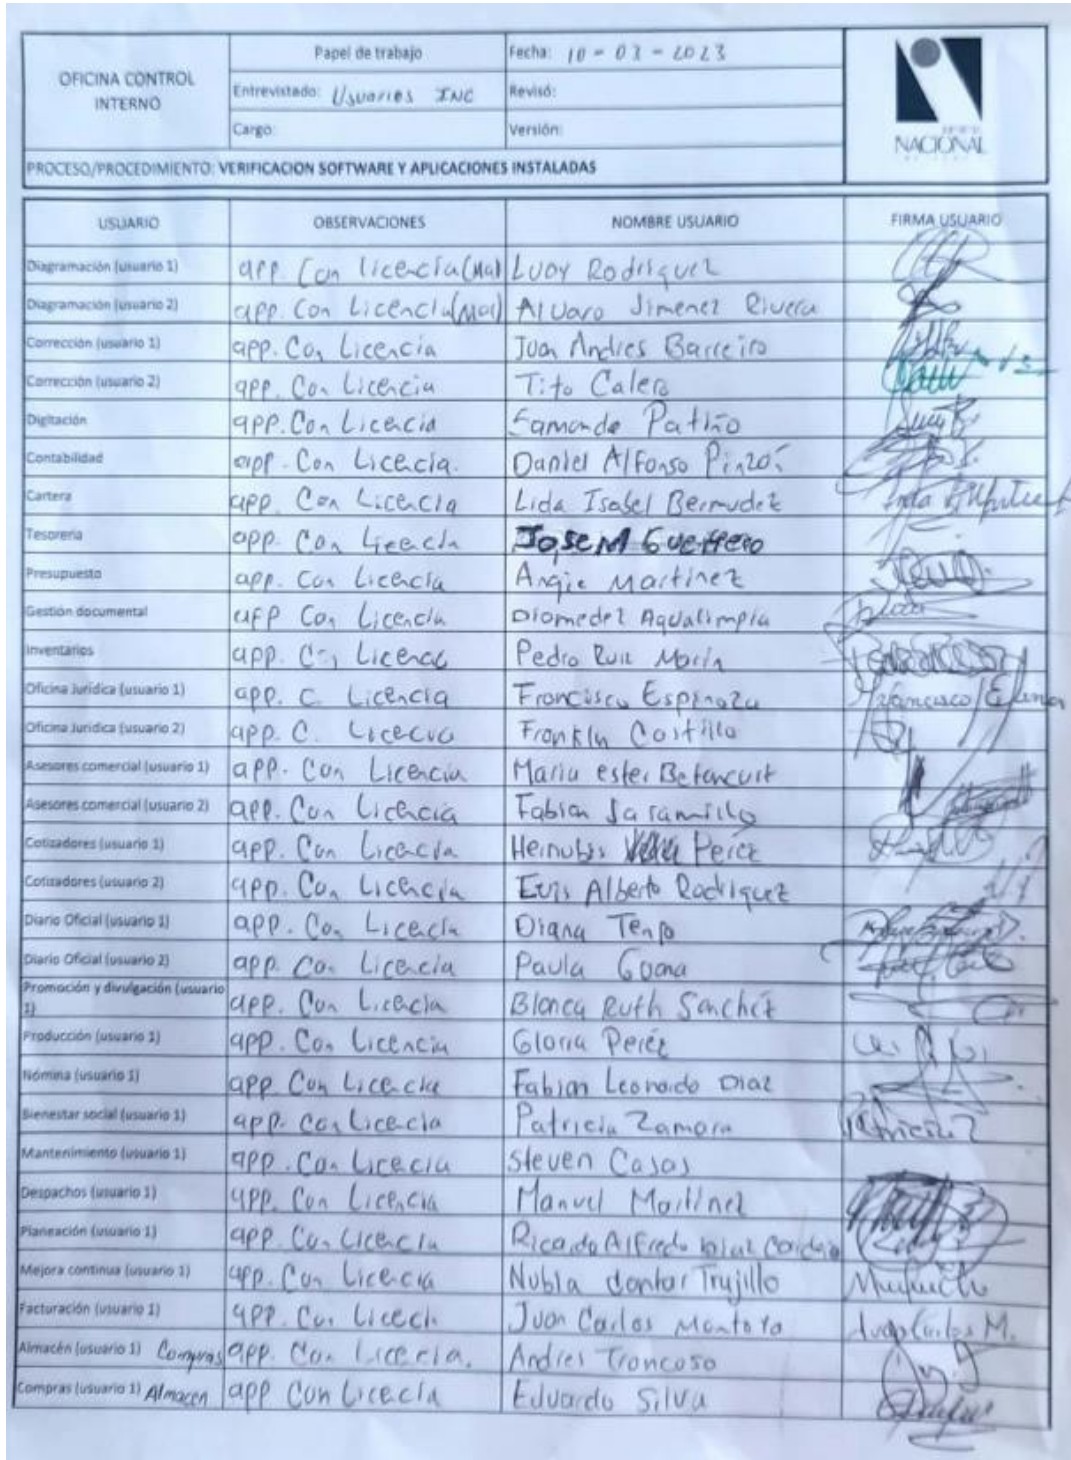 OFICINA CONTROL INTERNO
Papel de trabajo
Fecha: 10 - 03 - 2023
Entrevistado: Usuarios INC
Revisó:
Cargo:
Versión:
NACIONAL
PROCESO/PROCEDIMIENTO: VERIFICACION SOFTWARE Y APLICACIONES INSTALADAS
USUARIO OBSERVACIONES NOMBRE USUARIO FIRMA USUARIO
Diagramación (usuario 1) app. Con licencia (Mac) Lucy Rodriguez
Diagramación (usuario 2) app. Con Licencia (Mac) Alvaro Jimenez Rivera
Corrección (usuario 1) app. Con Licencia Juan Andres Barreiro
Corrección (usuario 2) app. Con Licencia Tito Calero
Digitación app. Con Licencia Patiño
Contabilidad app. Con Licencia. Daniel Alfonso Pinzón
Cartera app. Con Licencia Lida Isabel Bermudez
Tesoreria app. Con Licencia Jose M Guerrero
Presupuesto app. Con Licencia Angie Martinez
Gestión documental app Con Licencia Diomedez Aqualimpia
Inventarios app. Con Licenc Pedro Ruiz Marin
Oficina Jurídica (usuario 1) app. C. Licencia Francisco Espinoza Francisco
Oficina Jurídica (usuario 2) app. C. Franklin Castillo
Asesores comercial (usuario 1) app. Con Licencia Maria ester Betancurt
Asesores comercial (usuario 2) app. Con Licencia Fabian Jaramillo
Cotizadores (usuario 1) app. Con Licencia Perez
Cotizadores (usuario 2) app. Con Licencia Alberto Rodriguez
Diario Oficial (usuario 1) app. Con Licecia Diana
Diario Oficial (usuario 2) app. Con Licencia Paula
Promoción y divulgación (usuario 1) app. Con Licencia Blanca Ruth Sanchez
Producción (usuario 1) app. Con Licencia Gloria Peréz
Nómina (usuario 1) app. Con Licencia Fabian Leonardo Diaz
Bienestar social (usuario 1) app. Con Licencia Patricia Zamora Patricia Z
Mantenimiento (usuario 1) app. Con Licecia Steven Casas
Despachos (usuario 1) app. Con Licencia Manuel Martinez
Planeación (usuario 1) app. Con Licencia Ricardo Alfredo Diaz
Mejora continua (usuario 1) app. Con Licencia Nubia Trujillo
Facturación (usuario 1) app. Con Juan Carlos Montoya Juan Carlos M.
Almacén (usuario 1) Compras app. Con Licecia. Andres Troncoso
Compras (usuario 1) Almacen app Con Licecia Eduardo Silva